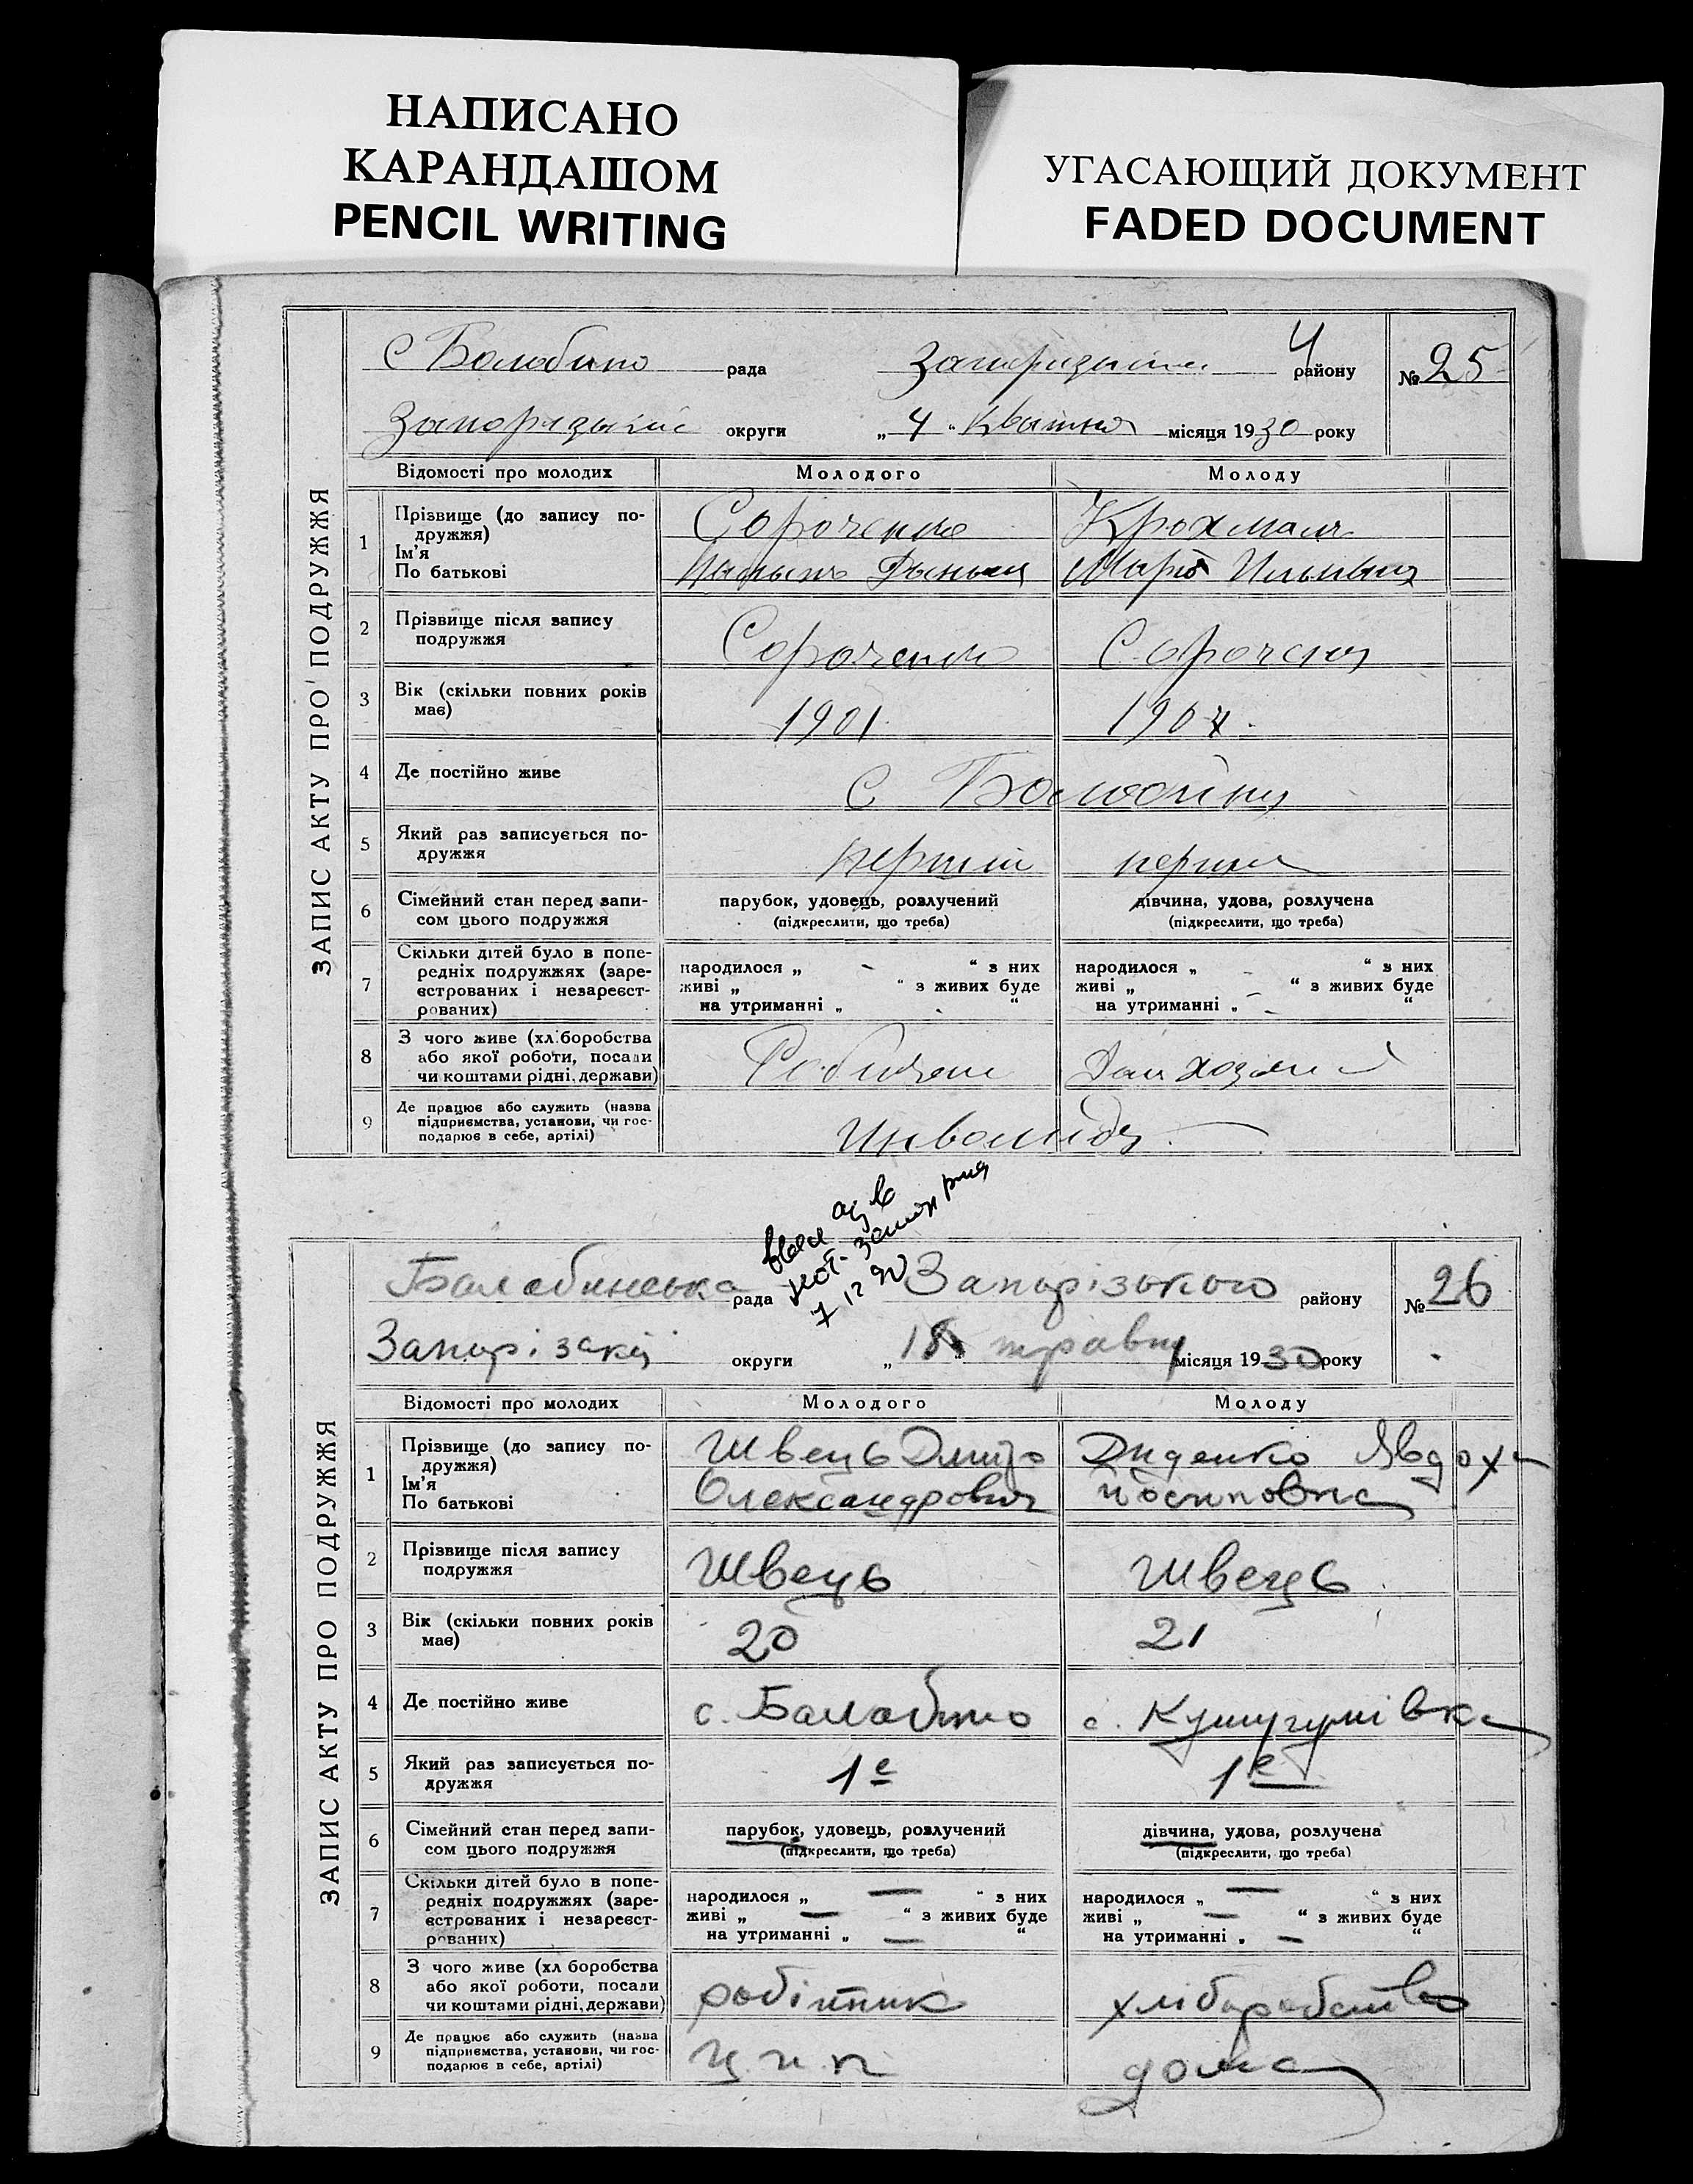 НАПИСАНО
КАРАНДАШОМ
PENCIL WRITING
УГАСАЮЩИЙ ДОКУМЕНТ
FADED DOCUMENT
ЗАПИС АКТУ ПРО ПОДРУЖЖЯ
с Балабино рада району № 25
округи „ 4 “ Квітня місяця 1930 року
Відомості про молодих Молодого Молоду
1 Прізвище (до запису по-
дружжя)
Ім'я
По батькові
Сороченко Крохмаль
Мария
2 Прізвище після запису
подружжя
Сороченко
3 Вік (скільки повних років
має)
1901 1904
4 Де постійно живе
с
5 Який раз записується по-
дружжя
перший перший
6 Сімейний стан перед запи-
сом цього подружжя
парубок, удовець, розлучений
(підкреслити, що треба)
дівчина, удова, розлучена
(підкреслити, що треба)
7 Скільки дітей було в попе-
редніх подружжях (заре-
єстрованих і незареєст-
рованих)
народилося „ – “ з них
живі „ “ з живих буде
на утриманні „ “
народилося „ – “ з них
живі „ – “ з живих буде
на утриманні „ – “
8 З чого живе (хліборобства
або якої роботи, посади
чи коштами рідні, держави)
9 Де працює або служить (назва
підприємства, установи, чи гос-
подарює в себе, артілі)
ЗАПИС АКТУ ПРО ПОДРУЖЖЯ
Балабинська рада Запорізького району № 26
Запорізької округи „ 18 “ травня місяця 1930 року
Відомості про молодих Молодого Молоду
1 Прізвище (до запису по-
дружжя)
Ім'я
По батькові
Швець Дмитро Диденко Явдоха
Олександрович Йосиповна
2 Прізвище після запису
подружжя
Швець Швець
3 Вік (скільки повних років
має)
20 21
4 Де постійно живе
с. Балабино с. Кушугумівка
5 Який раз записується по-
дружжя
1е 1е
6 Сімейний стан перед запи-
сом цього подружжя
парубок, удовець, розлучений
(підкреслити, що треба)
дівчина, удова, розлучена
(підкреслити, що треба)
7 Скільки дітей було в попе-
редніх подружжях (заре-
єстрованих і незареєст-
рованих)
народилося „ — “ з них
живі „ — “ з живих буде
на утриманні „ — “
народилося „ — “ з них
живі „ — “ з живих буде
на утриманні „ — “
8 З чого живе (хл боробства
або якої роботи, посади
чи коштами рідні, держави)
робітник хліборобство
9 Де працює або служить (назва
підприємства, установи, чи гос-
подарює в себе, артілі)
дома